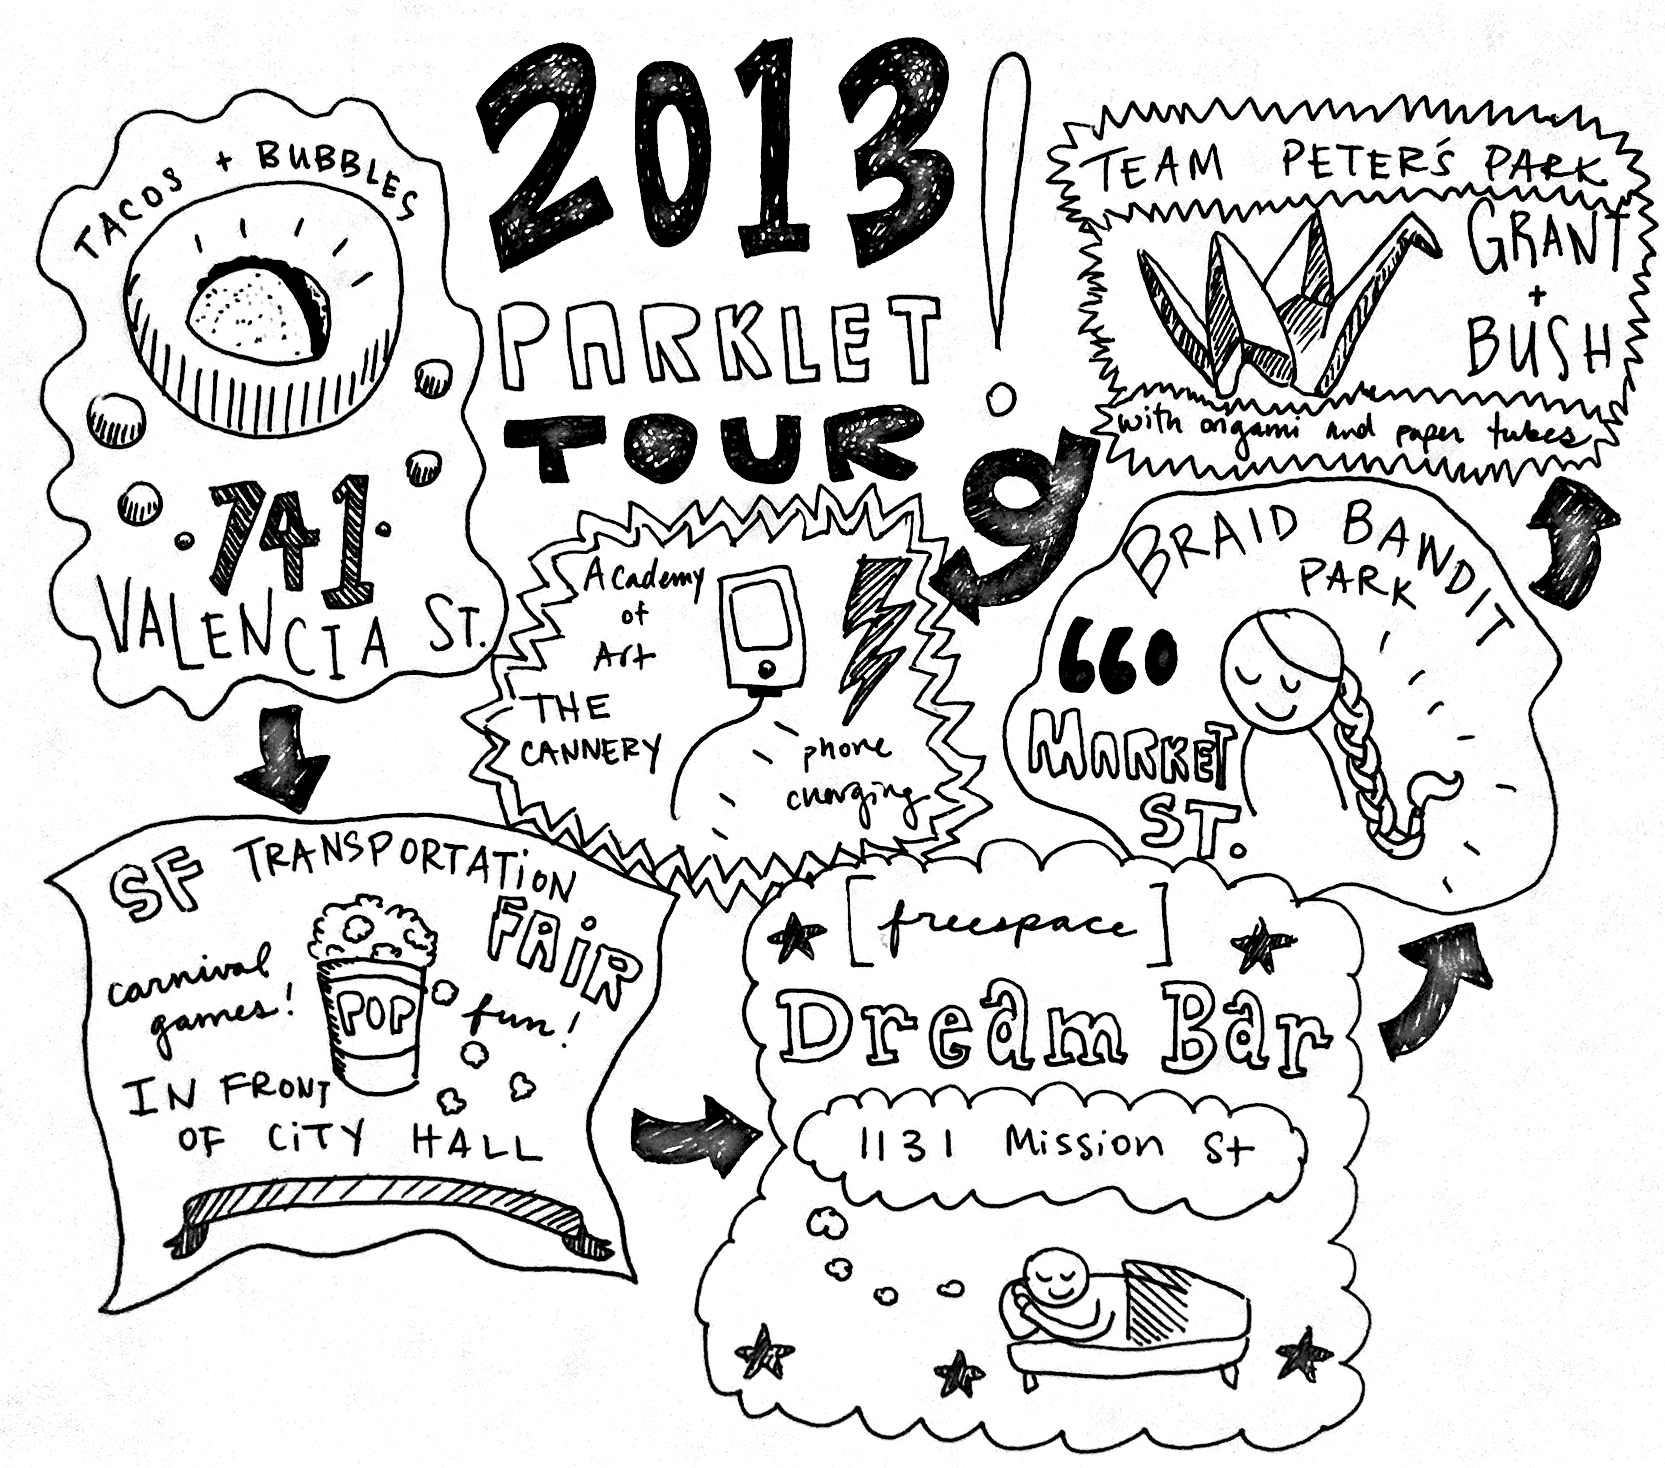 2013!
PARKLET
TOUR
TACOS + BUBBLES
741
VALENCIA ST.
SF TRANSPORTATION
FAIR
carnival
games!
POP
fun!
IN FRONT
OF CITY HALL
[freespace]
Dream Bar
1131 Mission St
BRAID BANDIT
PARK
660
MARKET
ST.
TEAM PETER'S PARK
GRANT
+
BUSH
with origami and paper tubes
Academy
of
Art
THE
CANNERY
phone
charging